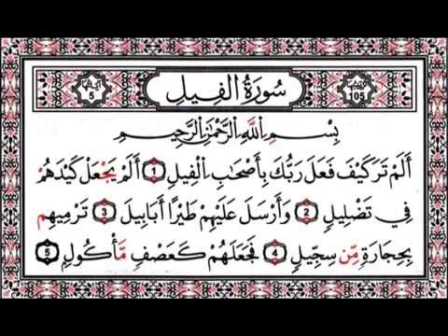 سُورَةُ الْفِيلِ
105
5
بِسْمِ اللَّهِ الرَّحْمَٰنِ الرَّحِيمِ
أَلَمْ تَرَ كَيْفَ فَعَلَ رَبُّكَ بِأَصْحَابِ الْفِيلِ 1 أَلَمْ يَجْعَلْ كَيْدَهُمْ
فِي تَضْلِيلٍ 2 وَأَرْسَلَ عَلَيْهِمْ طَيْرًا أَبَابِيلَ 3 تَرْمِيهِم
بِحِجَارَةٍ مِّن سِجِّيلٍ 4 فَجَعَلَهُمْ كَعَصْفٍ مَّأْكُولٍ 5